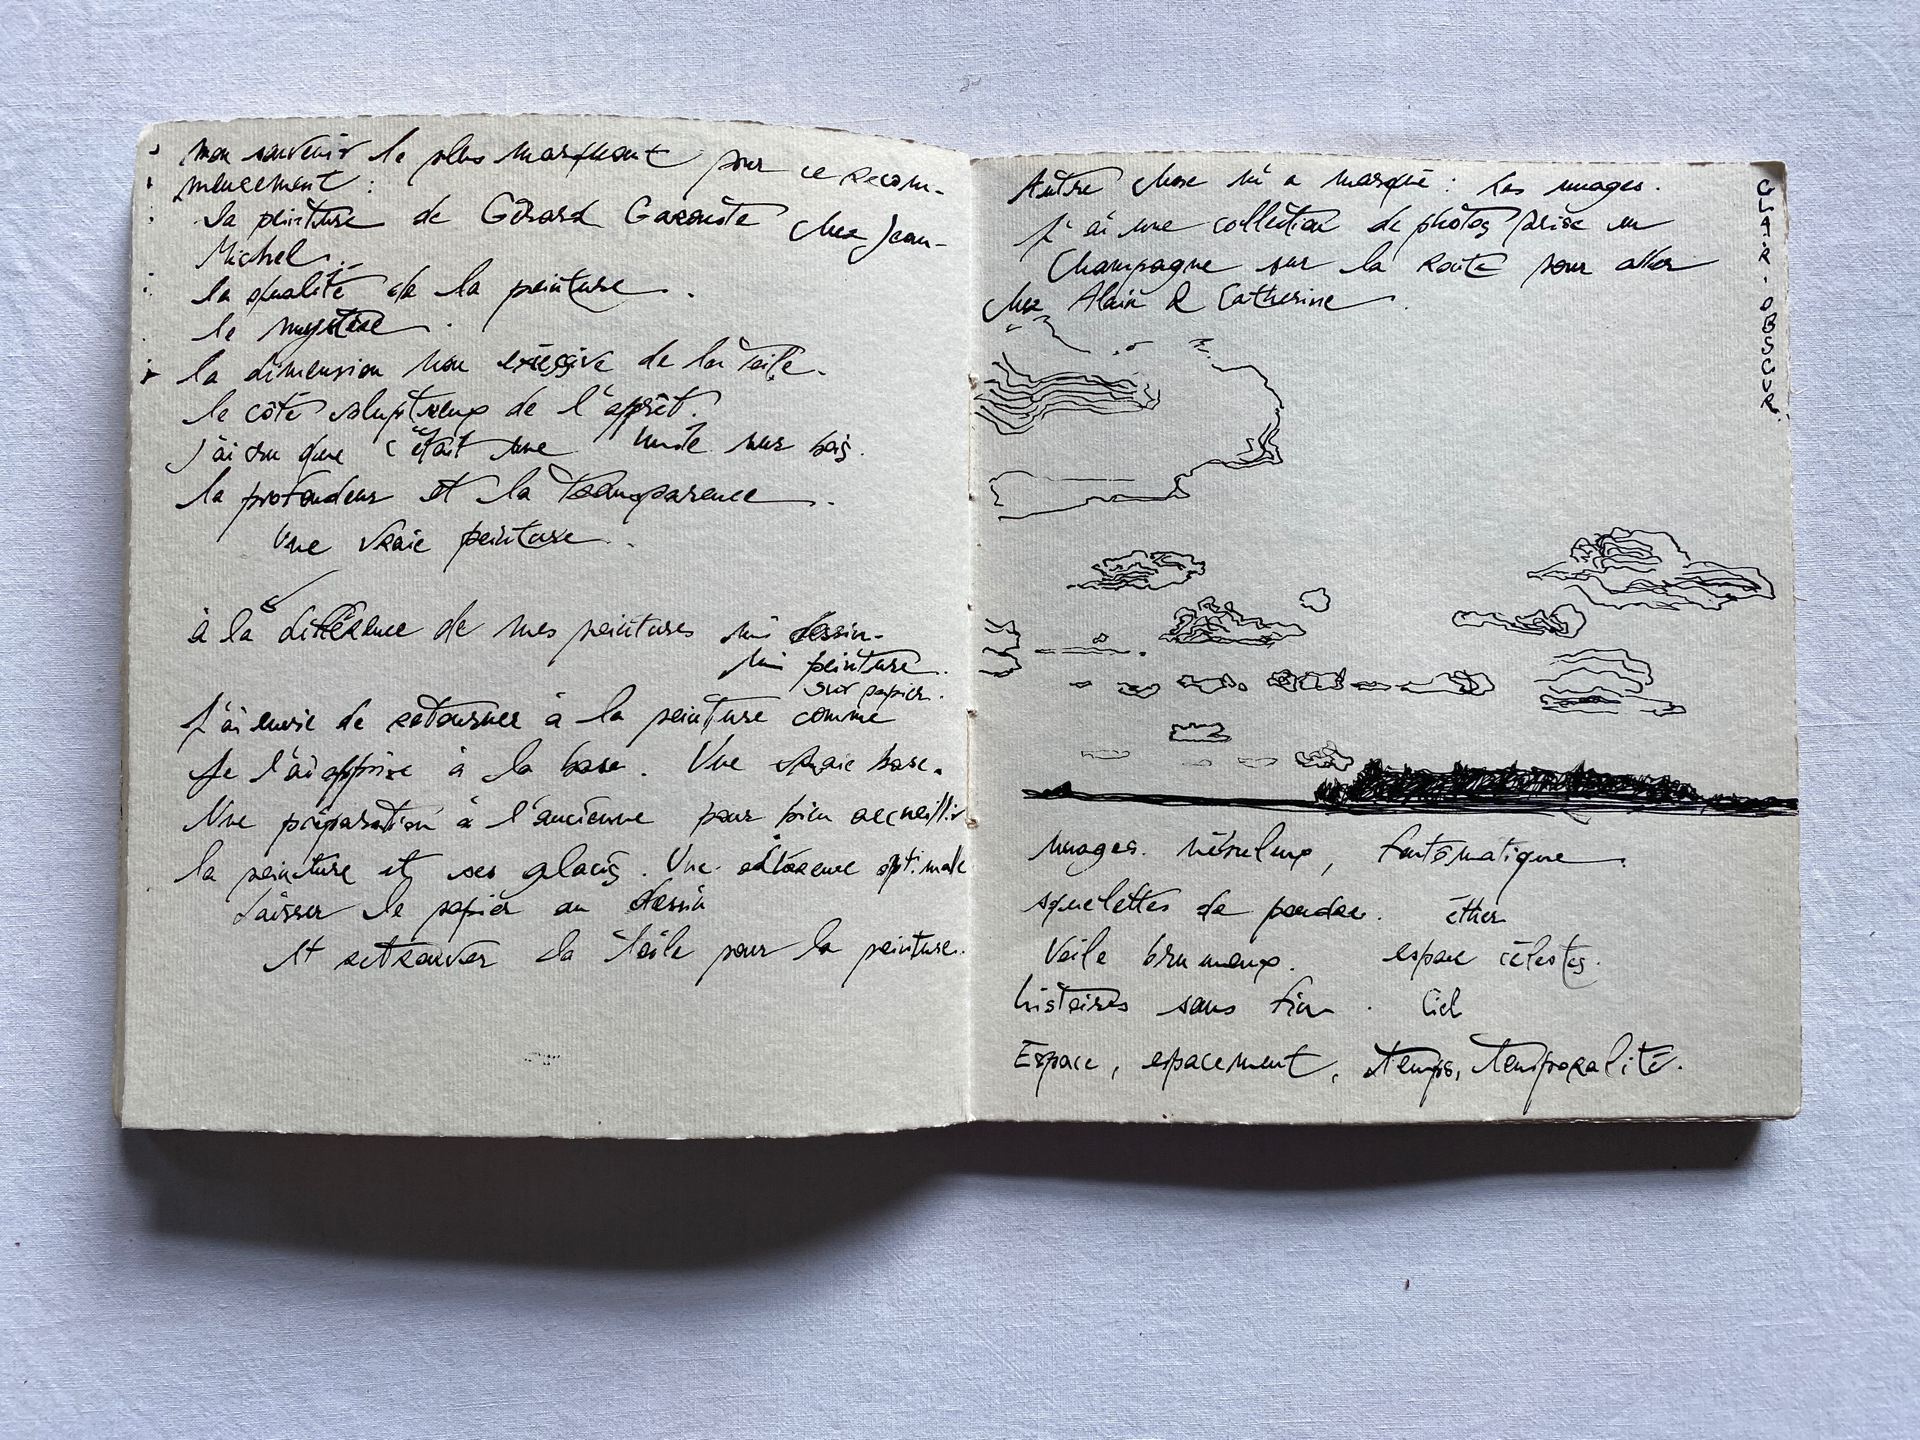 mon souvenir le plus marquant pour ce recom-
mencement :
la peinture de Gérard Garouste chez Jean-
Michel.
la qualité de la peinture.
le mystère.
la dimension non excessive de la toile.
le côté voluptueux de l'apprêt.
j'ai cru que c'était une huile sur bois.
la profondeur et la transparence.
Une vraie peinture.
à la différence de mes peintures mi dessin-
mi peinture
sur papier.
J'ai envie de retourner à la peinture comme
je l'ai apprise à la base. Une vraie base.
Une préparation à l'ancienne pour bien accueillir
la peinture et ses glacis. Une adhérence optimale
Laisser le papier au dessin
et retrouver la toile pour la peinture.
Autre chose m'a marqué : les nuages.
J'ai une collection de photos prise en
Champagne sur la route pour aller
chez Alain & Catherine.
CLAIR-OBSCUR.
nuages. nébuleux, fantômatique.
squelettes de poudre. éther
Voile brumeux. espace célestes.
histoires sans fin. Ciel
Espace, espacement, temps, temporalité.